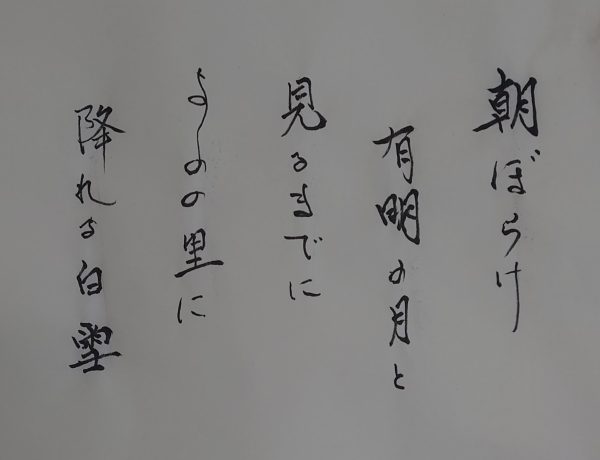 朝ぼらけ
有明の月と
見るまでに
よしのの里に
降れる白雪